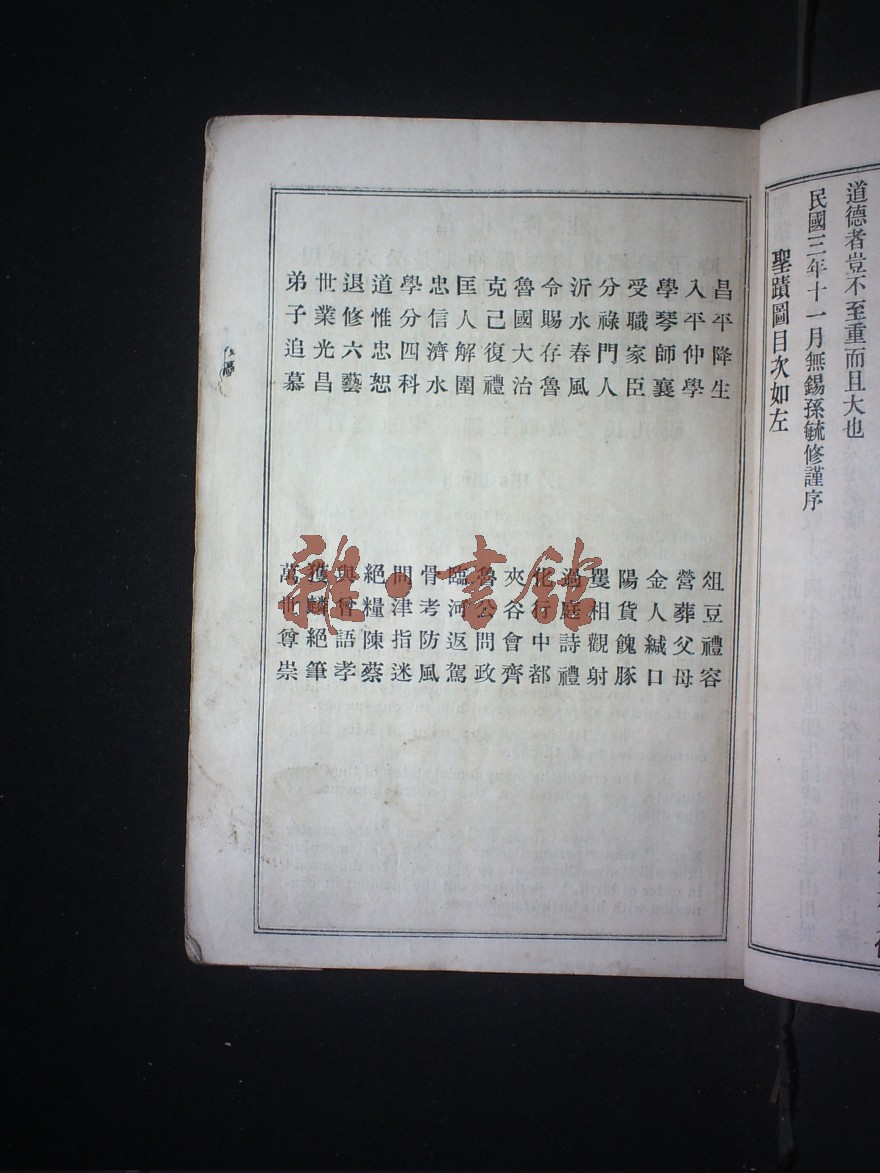 道德者豈不至重而且大也
民國三年十一月無錫孫毓修謹序
聖蹟圖目次如左
昌平降生
俎豆禮容
入平仲學
營葬父母
學琴師襄
金人緘口
受職家臣
陽貨餽豚
分祿門人
矍相觀射
沂水春風
過庭詩禮
令賜存魯
化行中都
魯國大治
夾谷會齊
克己復禮
魯公問政
匡人解圍
臨河返駕
忠信濟水
骨考防風
學分四科
問津指迷
道惟忠恕
絕糧陳蔡
退修六藝
與曾語孝
世業光昌
獲麟絕筆
弟子追慕
萬世尊崇
雜·書館